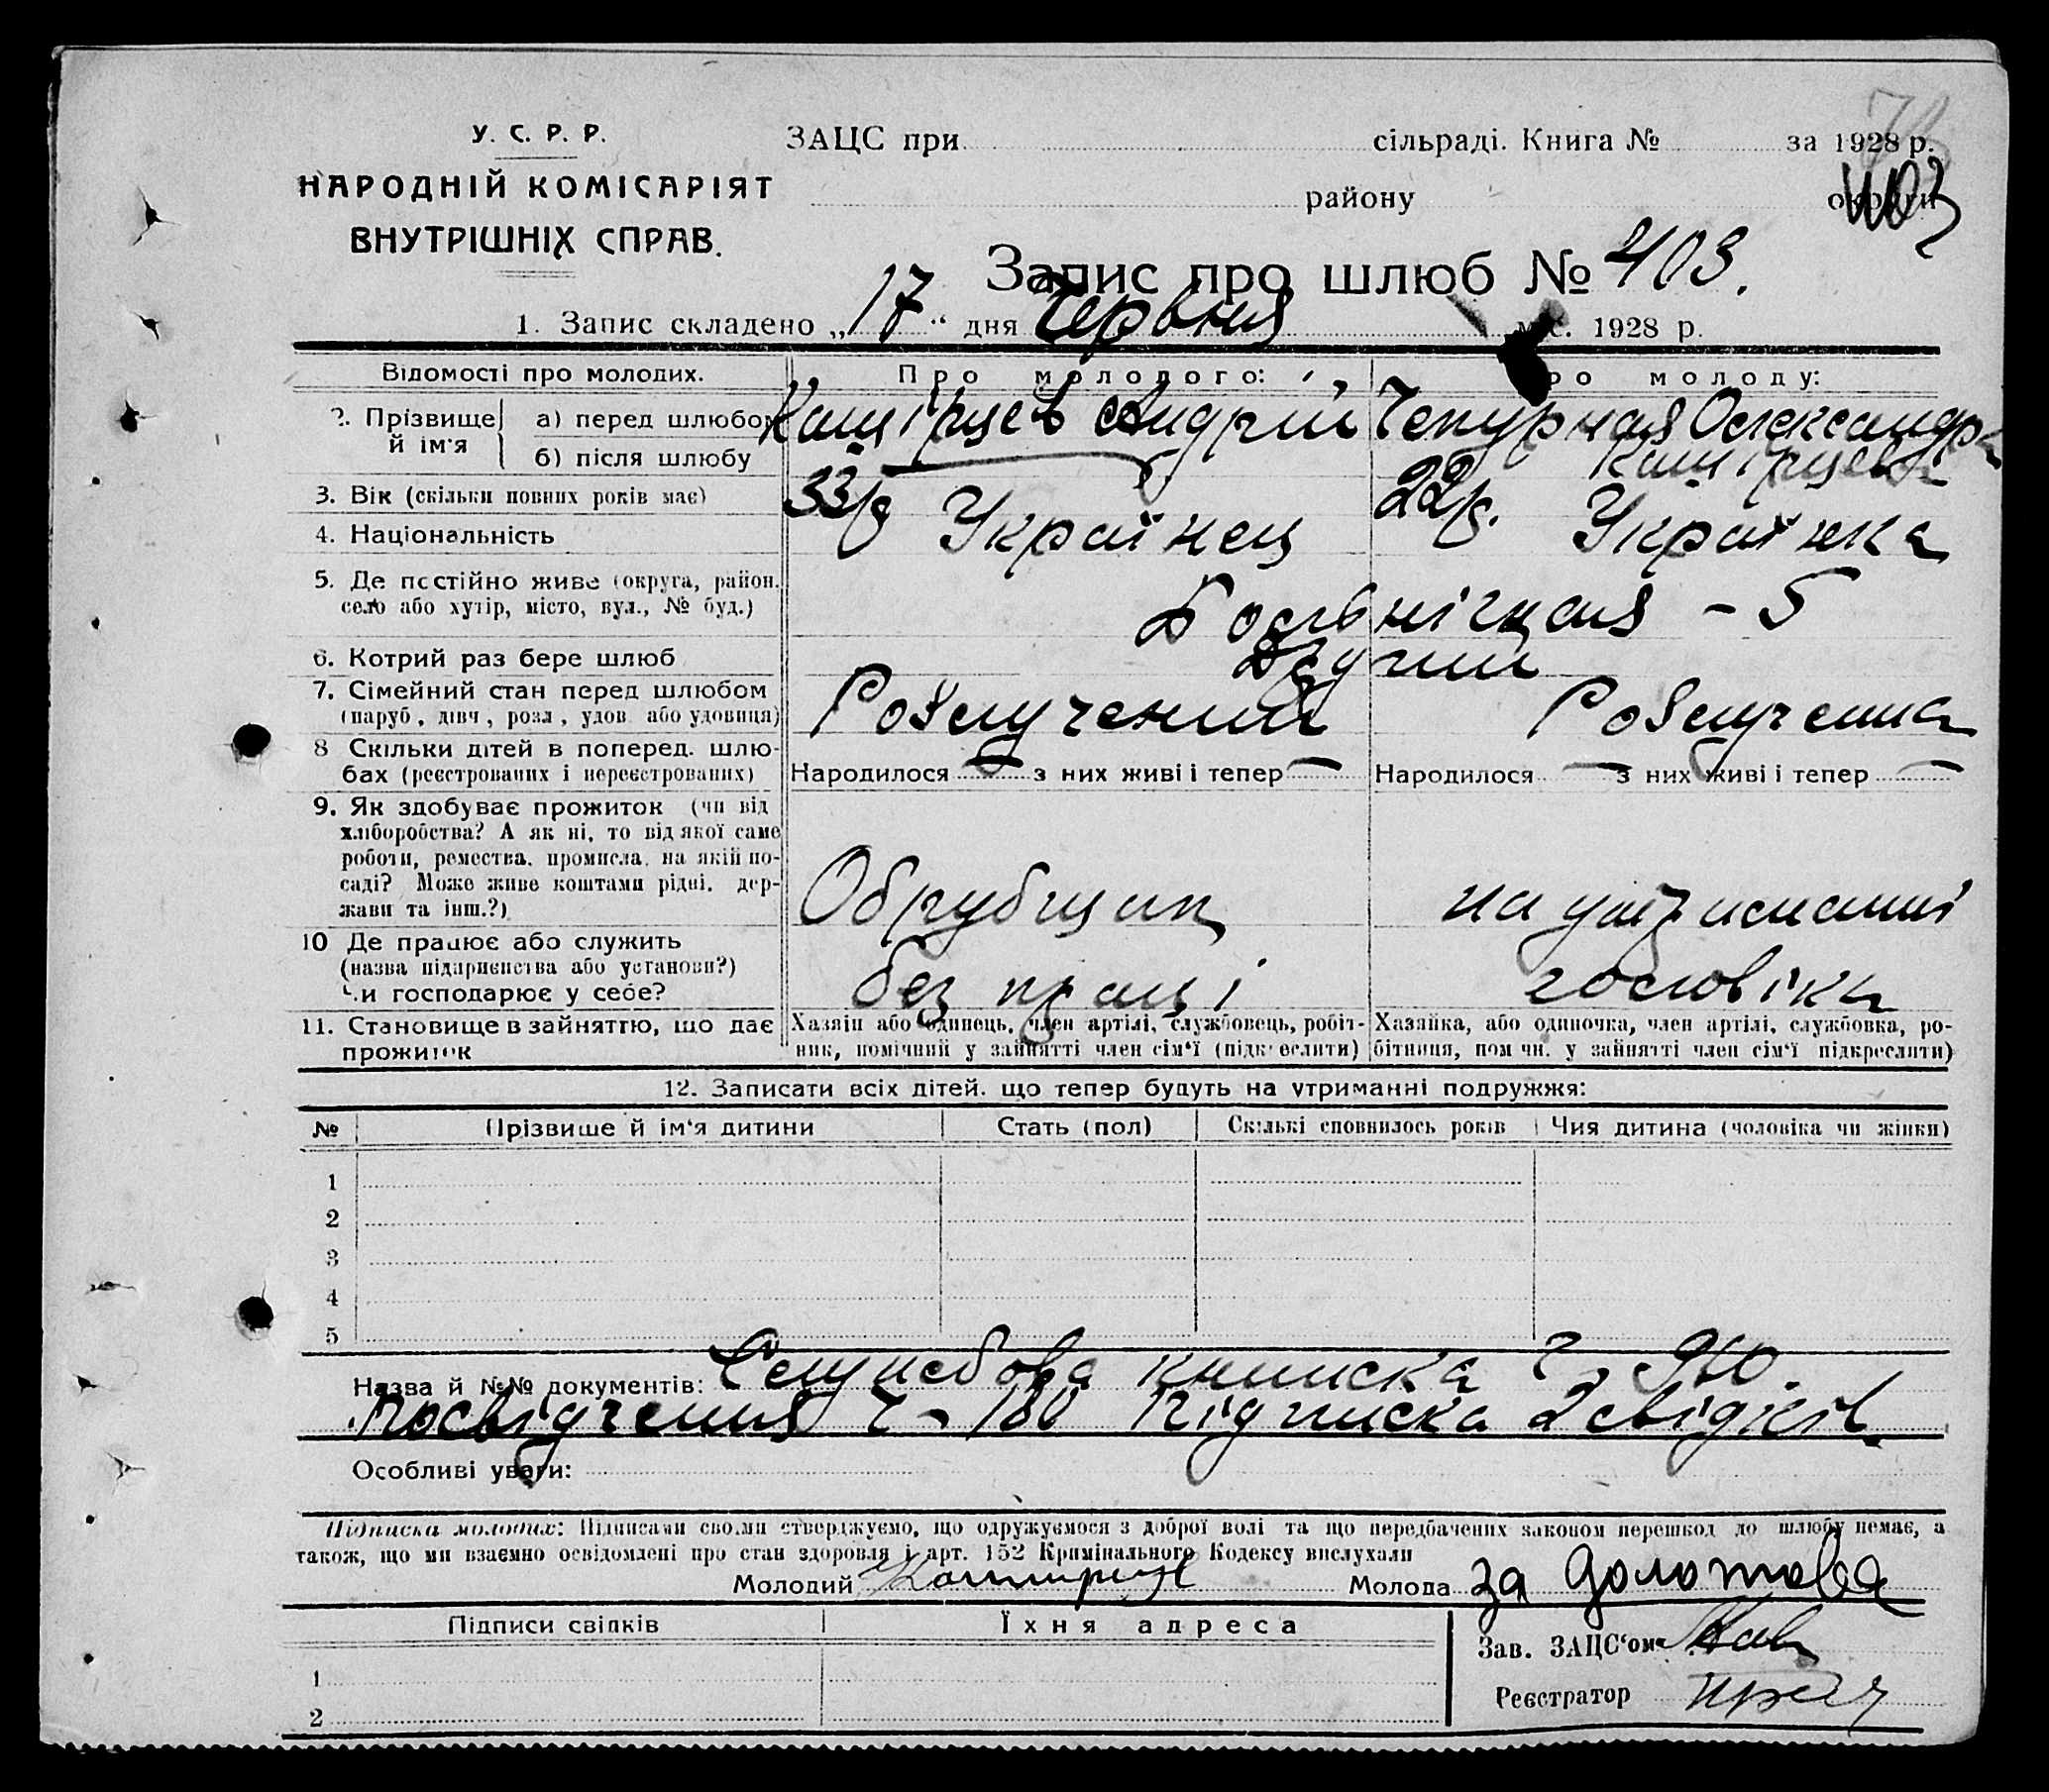 У. С. Р. Р.
НАРОДНІЙ КОМІСАРІЯТ
ВНУТРІШНІХ СПРАВ.
ЗАЦС при сільраді. Книга № за 1928 р.
району округи
403
Запис про шлюб № 403.
1. Запис складено „17“ дня Червня міс. 1928 р.
Відомості про молодих. Про молодого: Про молоду:
2. Прізвище й ім'я а) перед шлюбом Каширцев Андрій Чепурная Олександра
б) після шлюбу Каширцева
3. Вік (скільки повних років має) 33 р 22 р.
4. Національність Українец Українка
5. Де постійно живе (округа, район, село або хутір, місто, вул., № буд.) - 5
6. Котрий раз бере шлюб Другий
7. Сімейний стан перед шлюбом (паруб., дівч., розл., удов. або удовиця) Розлучений Розлучена
8 Скільки дітей в поперед. шлюбах (реєстрованих і нереєстрованих) Народилося — з них живі і тепер — Народилося — з них живі і тепер —
9. Як здобуває прожиток (чи від хліборобства? А як ні, то від якої саме роботи, ремества, промисла, на якій посаді? Може живе коштами рідні, держави та інш.?) Обрубщик на утриманні
10 Де працює або служить (назва підприємства або установи?) Чи господарює у себе? без праці чоловіка
11. Становище в зайняттю, що дає прожиток
Хазяїн або одинець, член артілі, службовець, робітник, помічний у зайнятті член сім'ї (підкреслити)
Хазяйка, або одиночка, член артілі, службовка, робітниця, помічн. у зайнятті член сім'ї підкреслити)
12. Записати всіх дітей, що тепер будуть на утриманні подружжя:
№ Прізвише й ім'я дитини Стать (пол) Скількі сповнилось років Чия дитина (чоловіка чи жінки)
1
2
3
4
5
Назва й №№ документів: Служебова книжска Ч. 910.
Посвідчення Ч - 180 Підписка 2 свідків
Особливі уваги:
Підписка молодих: Підписами своїми стверджуємо, що одружуємося з доброї волі та що передбачених законом перешкод до шлюбу немає, а
також, що ми взаємно освідомлені про стан здоровля і арт. 152 Кримінального Кодексу вислухали
Молодий Каширцев Молода за Долотова
Підписи свідків Їхня адреса
Зав. ЗАЦС'ом
1
Реєстратор
2